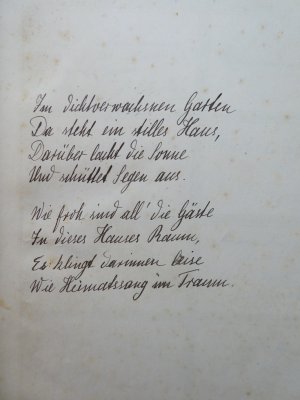 Im dichtverwachsnen Garten
Da steht ein stilles Haus,
Darüber lacht die Sonne
Und schüttet Segen aus.
Wie froh sind all' die Gäste
In dieses Hauses Raum,
Es klingt darinnen leise
Wie Heimatssang im Traum.